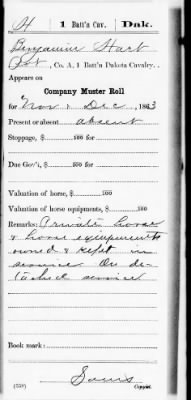 H | 1 Batt'n Cav. | Dak.
Benjamin Hart
Pvt, Co. A, 1 Batt'n Dakota Cavalry.
Appears on
Company Muster Roll
for Nov & Dec, 1863
Present or absent absent
Stoppage, $ 100 for
Due Gov't, $ 100 for
Valuation of horse, $ 100
Valuation of horse equipments, $ 100
Remarks: Private horse
& horse equipments
owned & kept in
service On de-
tached service
Book mark:
(358)
Copyist.